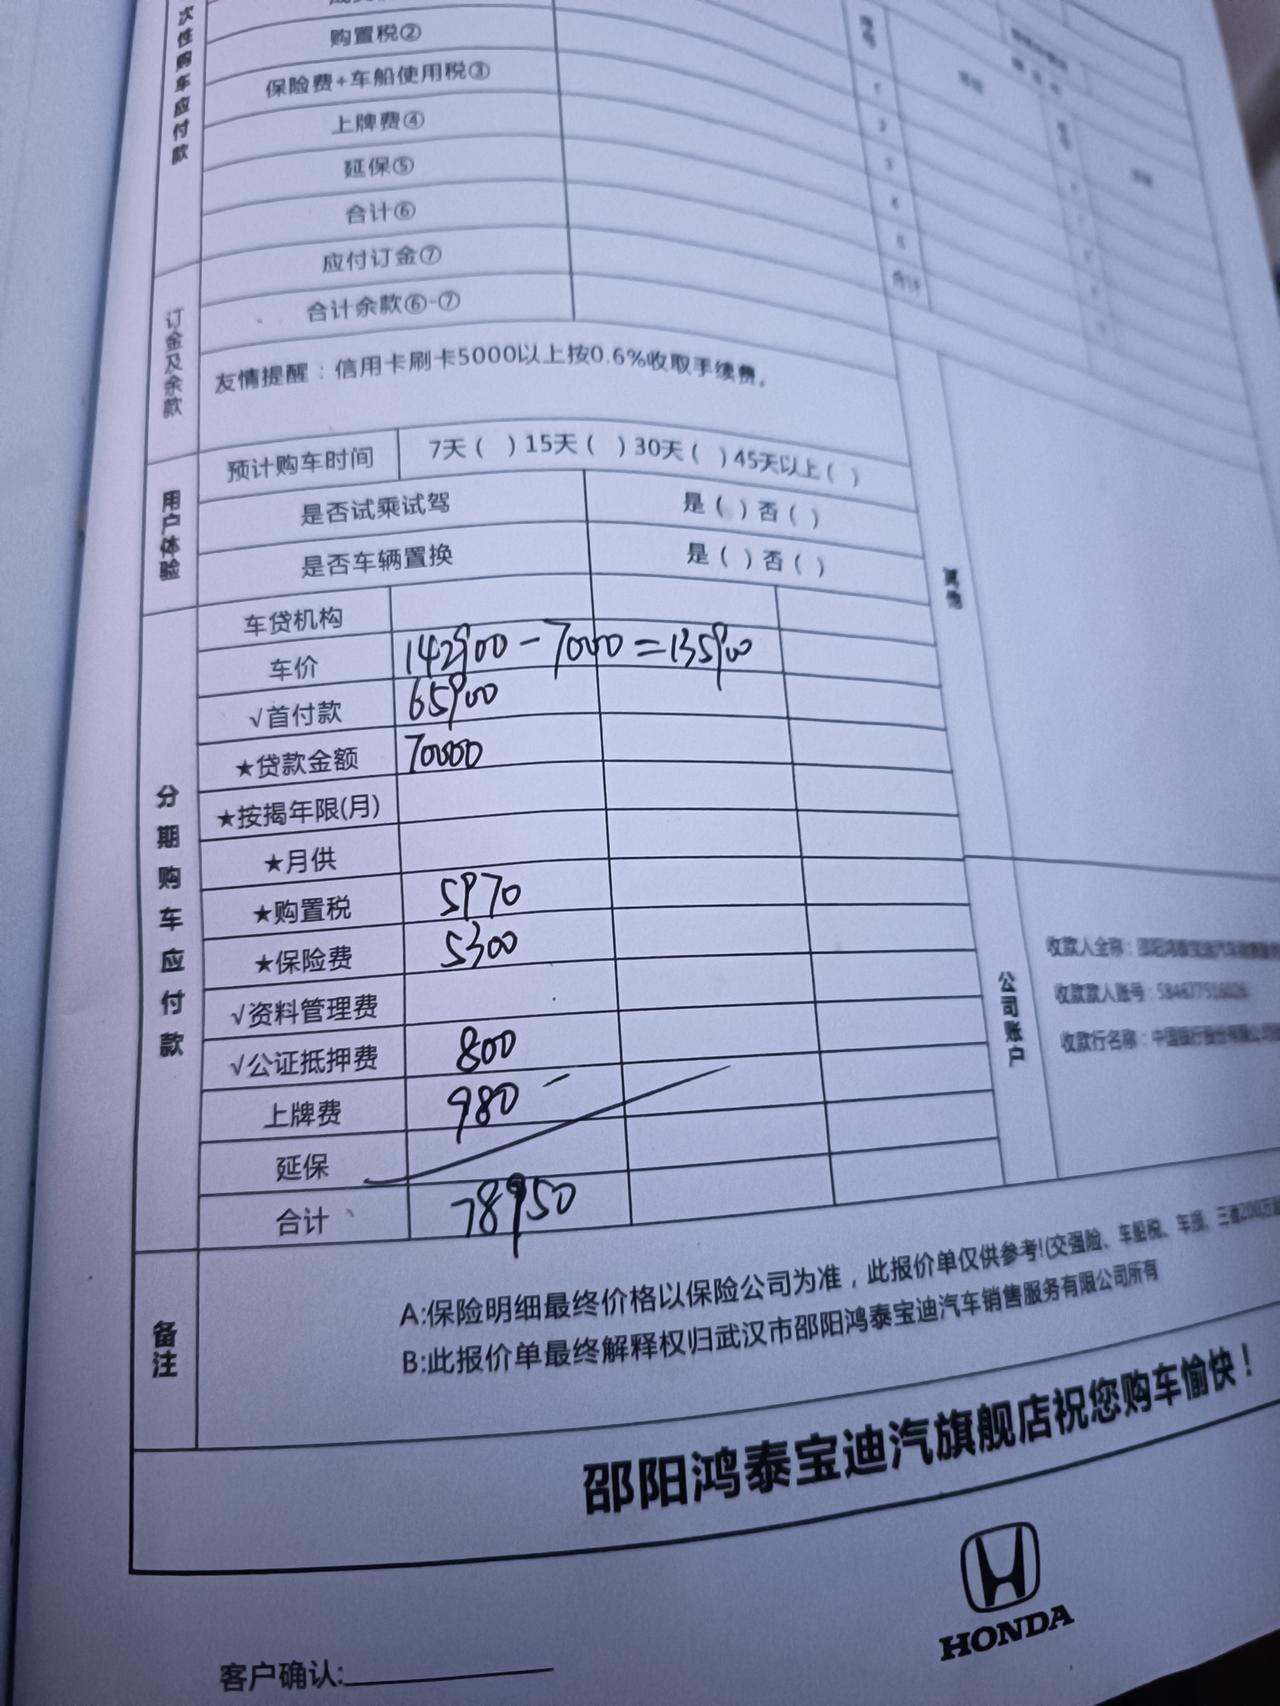 次性购车应付款
购置税②
保险费+车船使用税③
上牌费④
延保⑤
合计⑥
订金及余款
应付订金⑦
合计余款⑥-⑦
合计
友情提醒：信用卡刷卡5000以上按0.6%收取手续费。
用户体验
预计购车时间 7天（ ）15天（ ）30天（ ）45天以上（ ）
是否试乘试驾 是（ ）否（ ）
是否车辆置换 是（ ）否（ ）
其他
分期购车应付款
车贷机构
车价 142900-7000=135900
√首付款 65900
★贷款金额 70000
★按揭年限(月)
★月供
★购置税 5970
★保险费 5300
√资料管理费
√公证抵押费 800
上牌费 980
延保
合计 78950
公司账户
收款人全称：邵阳鸿泰宝迪汽车销售服务
收款款人账号：584677516026
收款行名称：中国银行股份有限公司
备注
A:保险明细最终价格以保险公司为准，此报价单仅供参考!(交强险、车船税、车损、三者200万
B:此报价单最终解释权归武汉市邵阳鸿泰宝迪汽车销售服务有限公司所有
邵阳鸿泰宝迪汽旗舰店祝您购车愉快！
HONDA
客户确认: